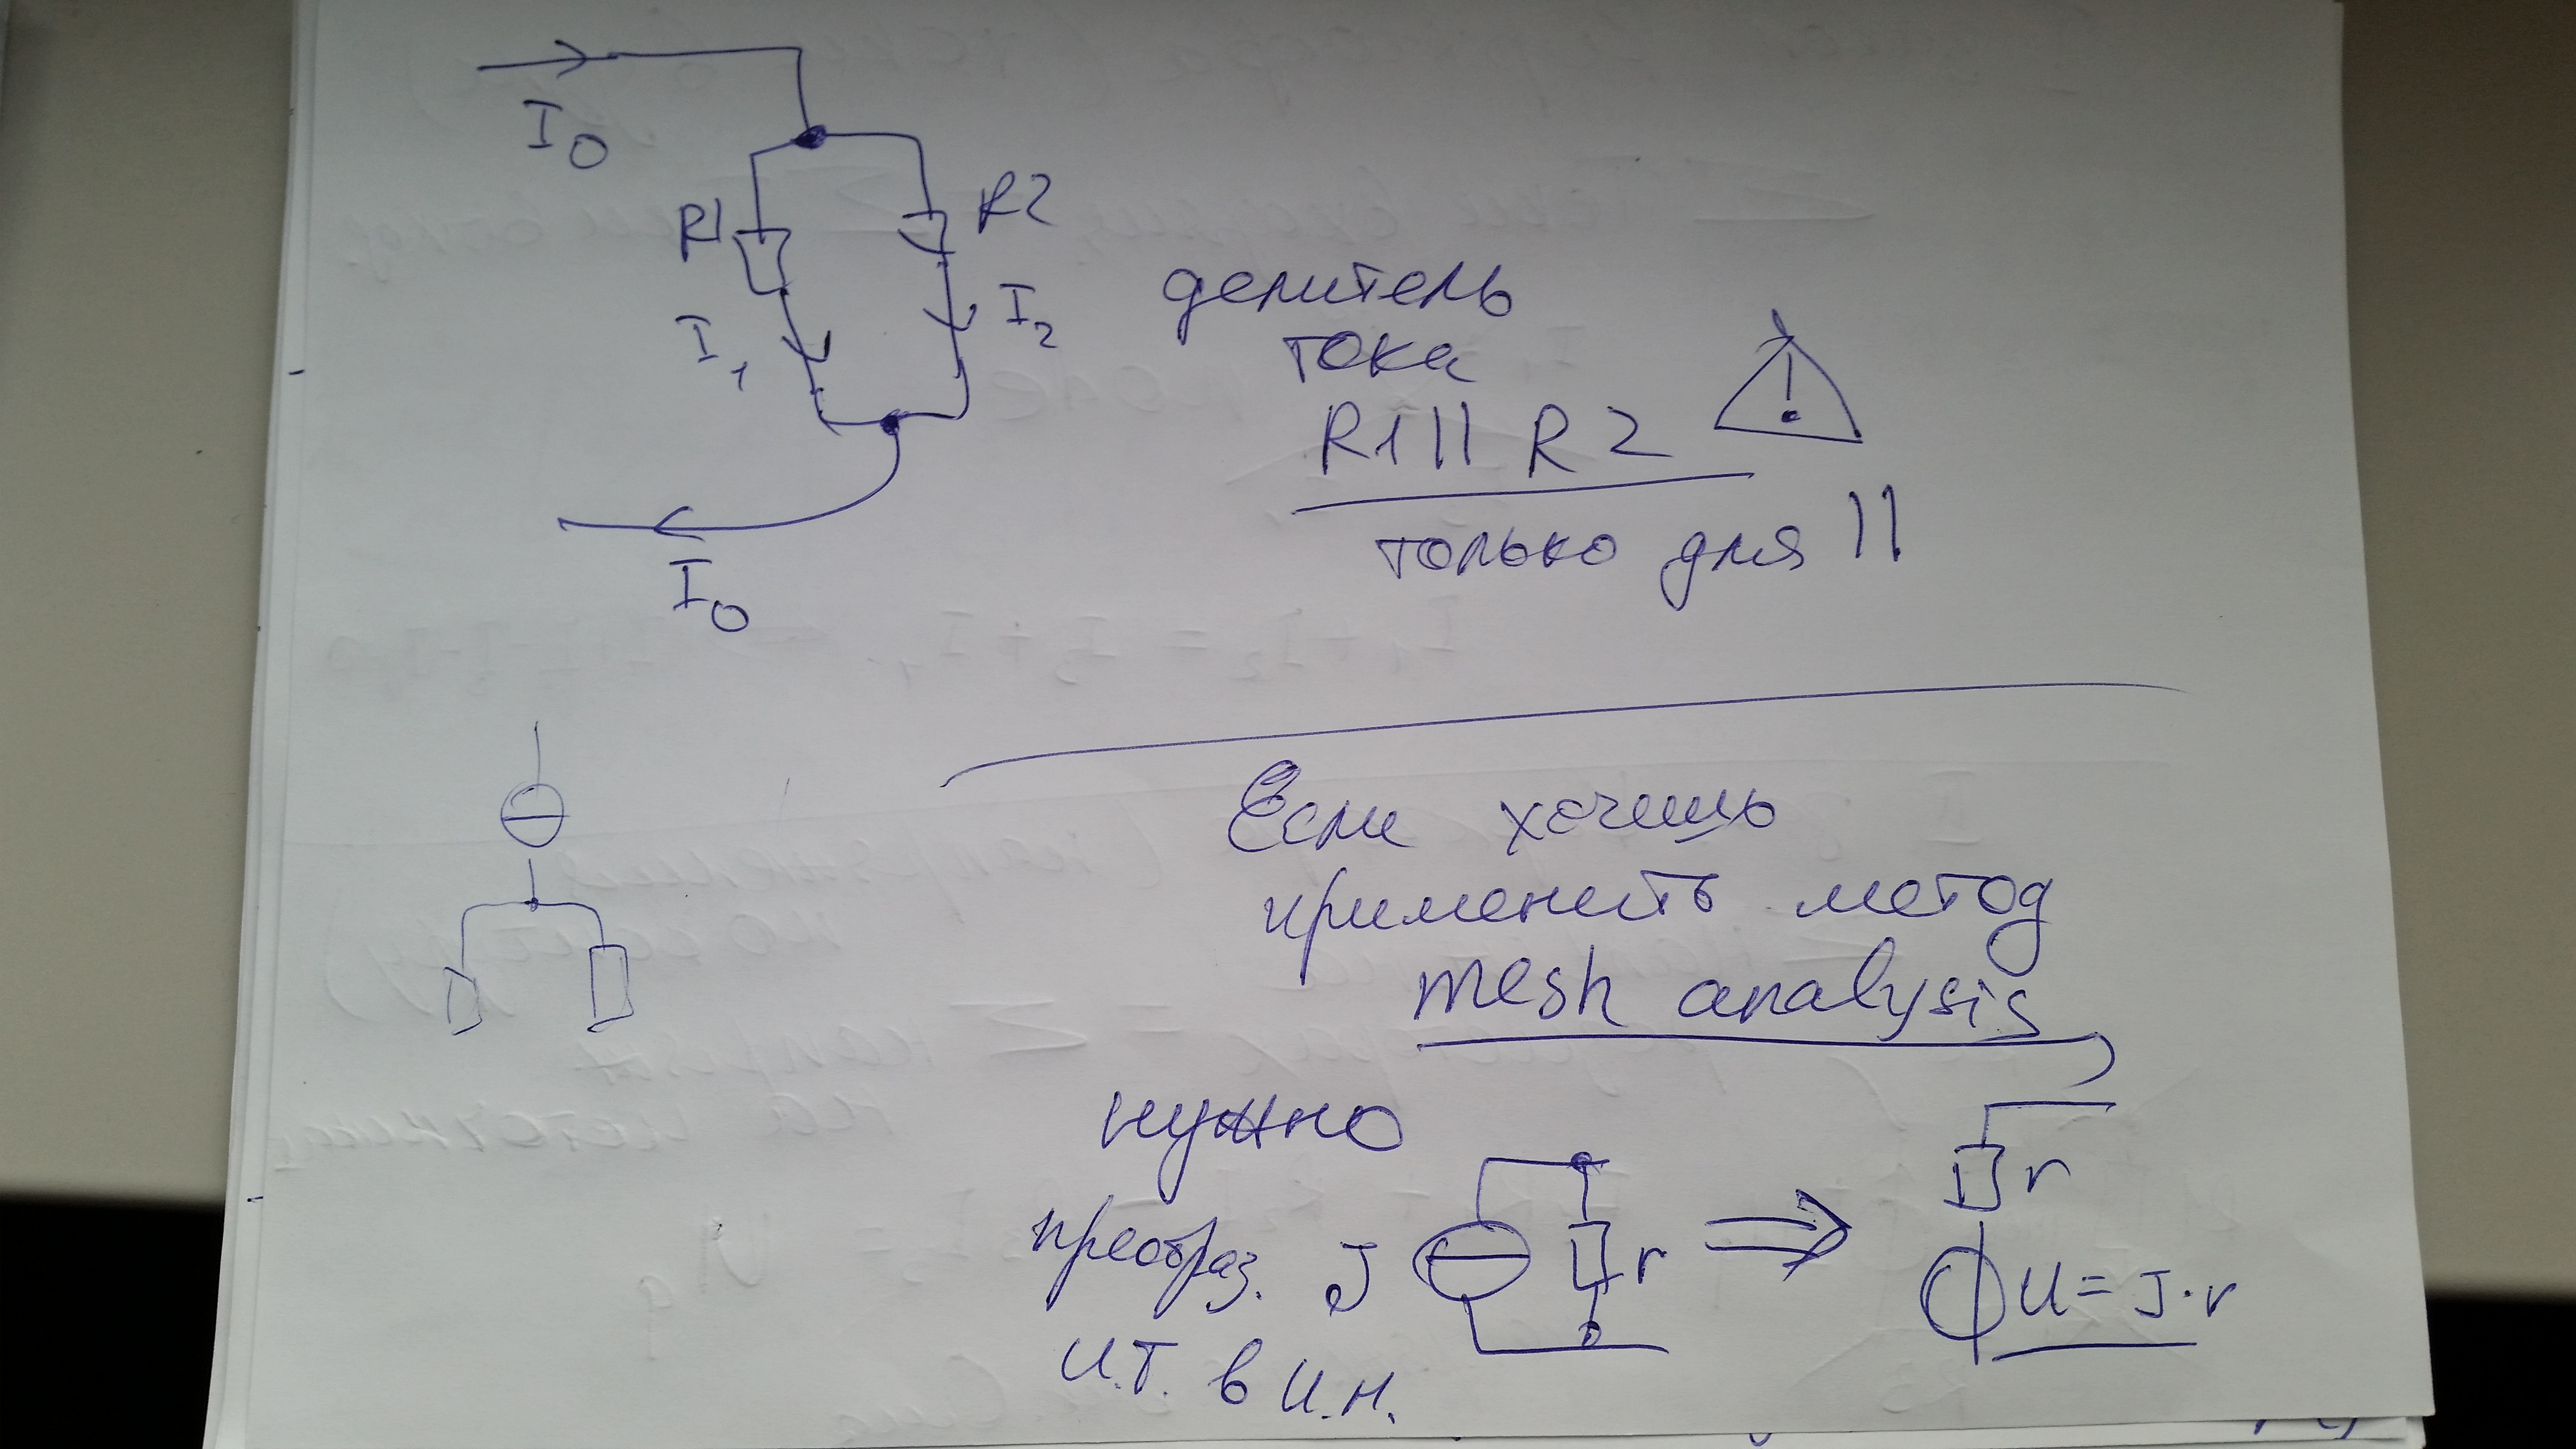 I₀
R1
R2
I₁
I₂
I₀
делитель
тока
R1 || R2
!
только для ||
Если хочешь
применить метод
mesh analysis
нужно
преобраз.
и.т. в и.н.
J
r
r
U = J·r